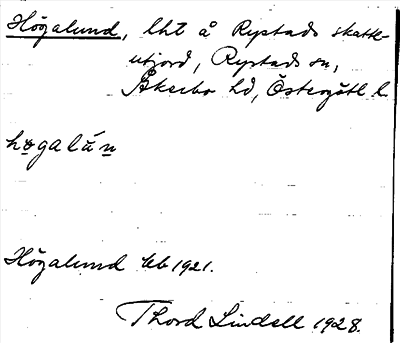 Högalund, lht å Rystads skatte-
utjord, Rystads sn,
Åkerbo hd, Östergötl. l.
høgalún
Högalund Ub 1921.
Thord Lindell 1928.